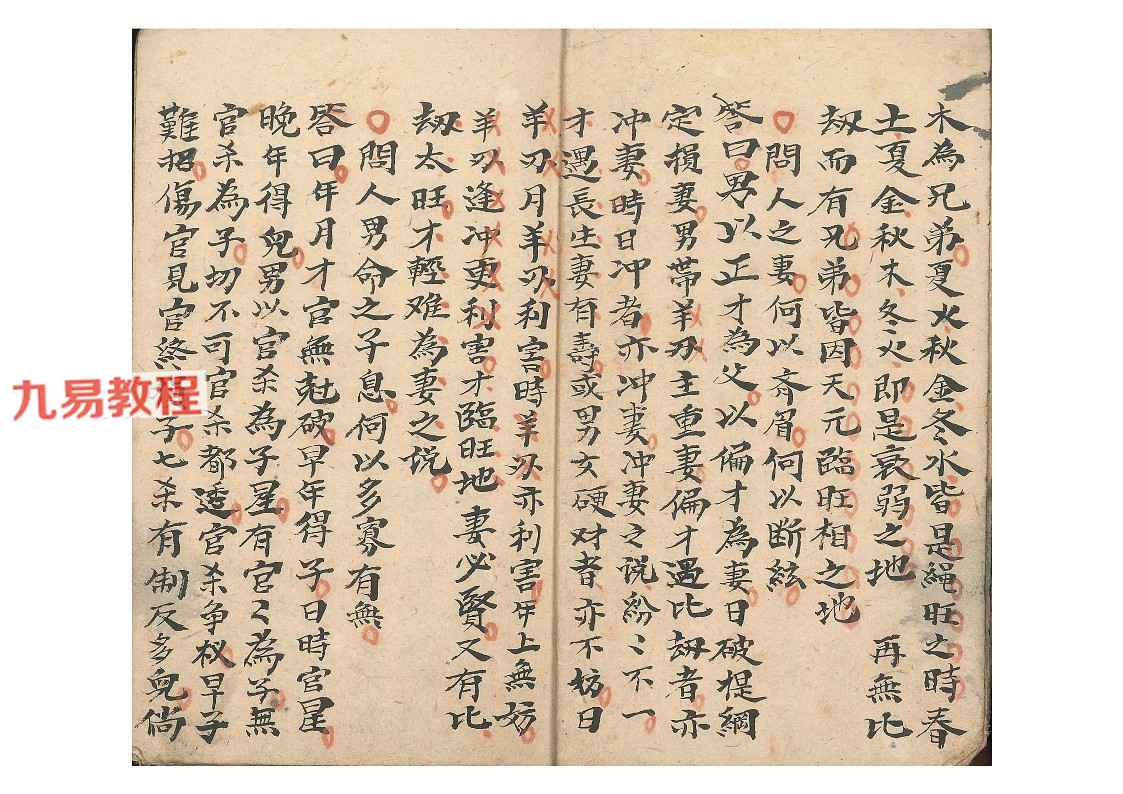 木為兄弟夏火秋金冬水皆是绳旺之時春
土夏金秋木冬火即是衰弱之地 再無比
刼而有兄弟皆因天元臨旺相之地
問人之妻何以齐眉何以断絃
答曰男以正才為父以偏才為妻日破提綱
定損妻男帶羊刃主重妻偏才遇比刼者亦
冲妻時日冲者亦冲妻冲妻之说紛〻不一
才遇長生妻有壽或男女硬对者亦不妨日
羊刃月羊刃利害時羊刃亦利害年上無妨
羊刃逢冲更利害才臨旺地妻必賢又有比
刼太旺才輕难為妻之说
問人男命之子息何以多寡有無
答曰年月才官無尅破早年得子日時官星
晚年得兒男以官杀為子星有官〻為子無
官杀為子切不可官杀都透官杀争权早子
難招傷官見官終子七杀有制反多兒倘
九易教程